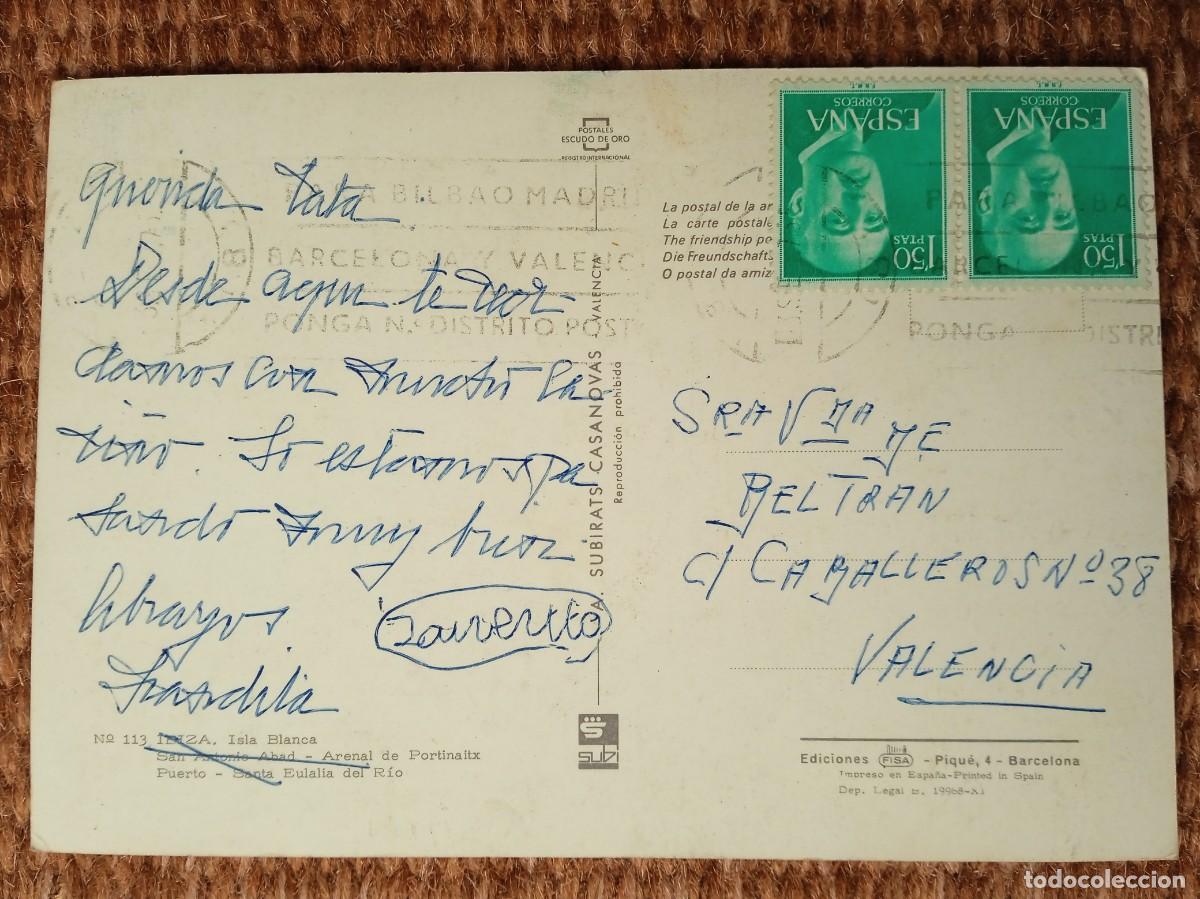 POSTALES
ESCUDO DE ORO
REGISTRO INTERNACIONAL
Querida Tata
Desde aqui te recor-
damos con mucho ca-
riño. Lo estamos pa
sando muy bien.
Abrazos.
Nº 113 IBIZA, Isla Blanca
San Antonio Abad - Arenal de Portinaitx
Puerto - Santa Eulalia del Río
BILBAO MADRI
BARCELONA Y VALENC
PONGA N.º DISTRITO POST
A. SUBIRATS CASANOVAS - VALENCIA
Reproducción prohibida
SUBI
La postal de la a
La carte postale
The friendship po
Die Freundschafts
O postal da amiz
ESPAÑA
CORREOS
F.N.M.T.
1'50
PTAS
ESPAÑA
CORREOS
F.N.M.T.
1'50
PTAS
PONGA DISTRI
SRA VDA DE
BELTRAN
C/ CABALLEROS Nº 38
VALENCIA
Ediciones FISA - Piqué, 4 - Barcelona
Impreso en España-Printed in Spain
Dep. Legal B. 19968-XI
todocoleccion